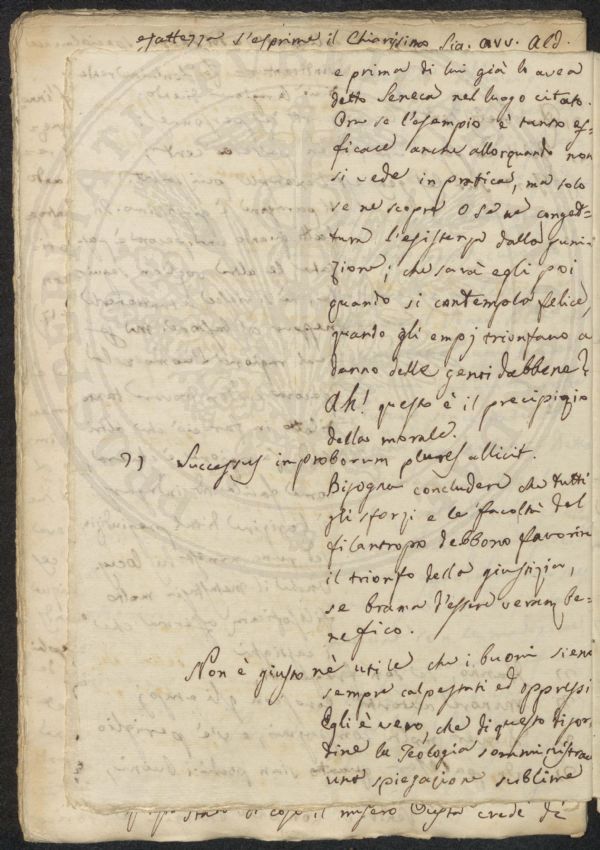 esattezza s'esprime il Chiarissimo Sia. avv. Ald.
e prima di lui già lo avea
detto Seneca nel luogo citato.
Ora se l'esempio è tanto ef=
ficace anche allorquando non
si vede in pratica, ma solo
se ne scopre o se ne conget=
tura l'esistenza dalla puni
zione; che sarà egli poi
quando si contempla felice,
quando gli empj trionfano a
danno delle genti dabbene?
Ah! questo è il precipizio
della morale.
7) Successus improborum plures allicit.
Bisogna concludere che tutti
gli sforzi e le facoltà del
filantropo debbono favorire
il trionfo della giustizia,
se brama d'essere veram. be=
nefico.
Non è giusto nè utile che i buoni sieno
sempre calpestati ed oppressi
Egli è vero, che di questo disor=
dine la Teologia somministra
una spiegazione sublime
di cose il misero crede di